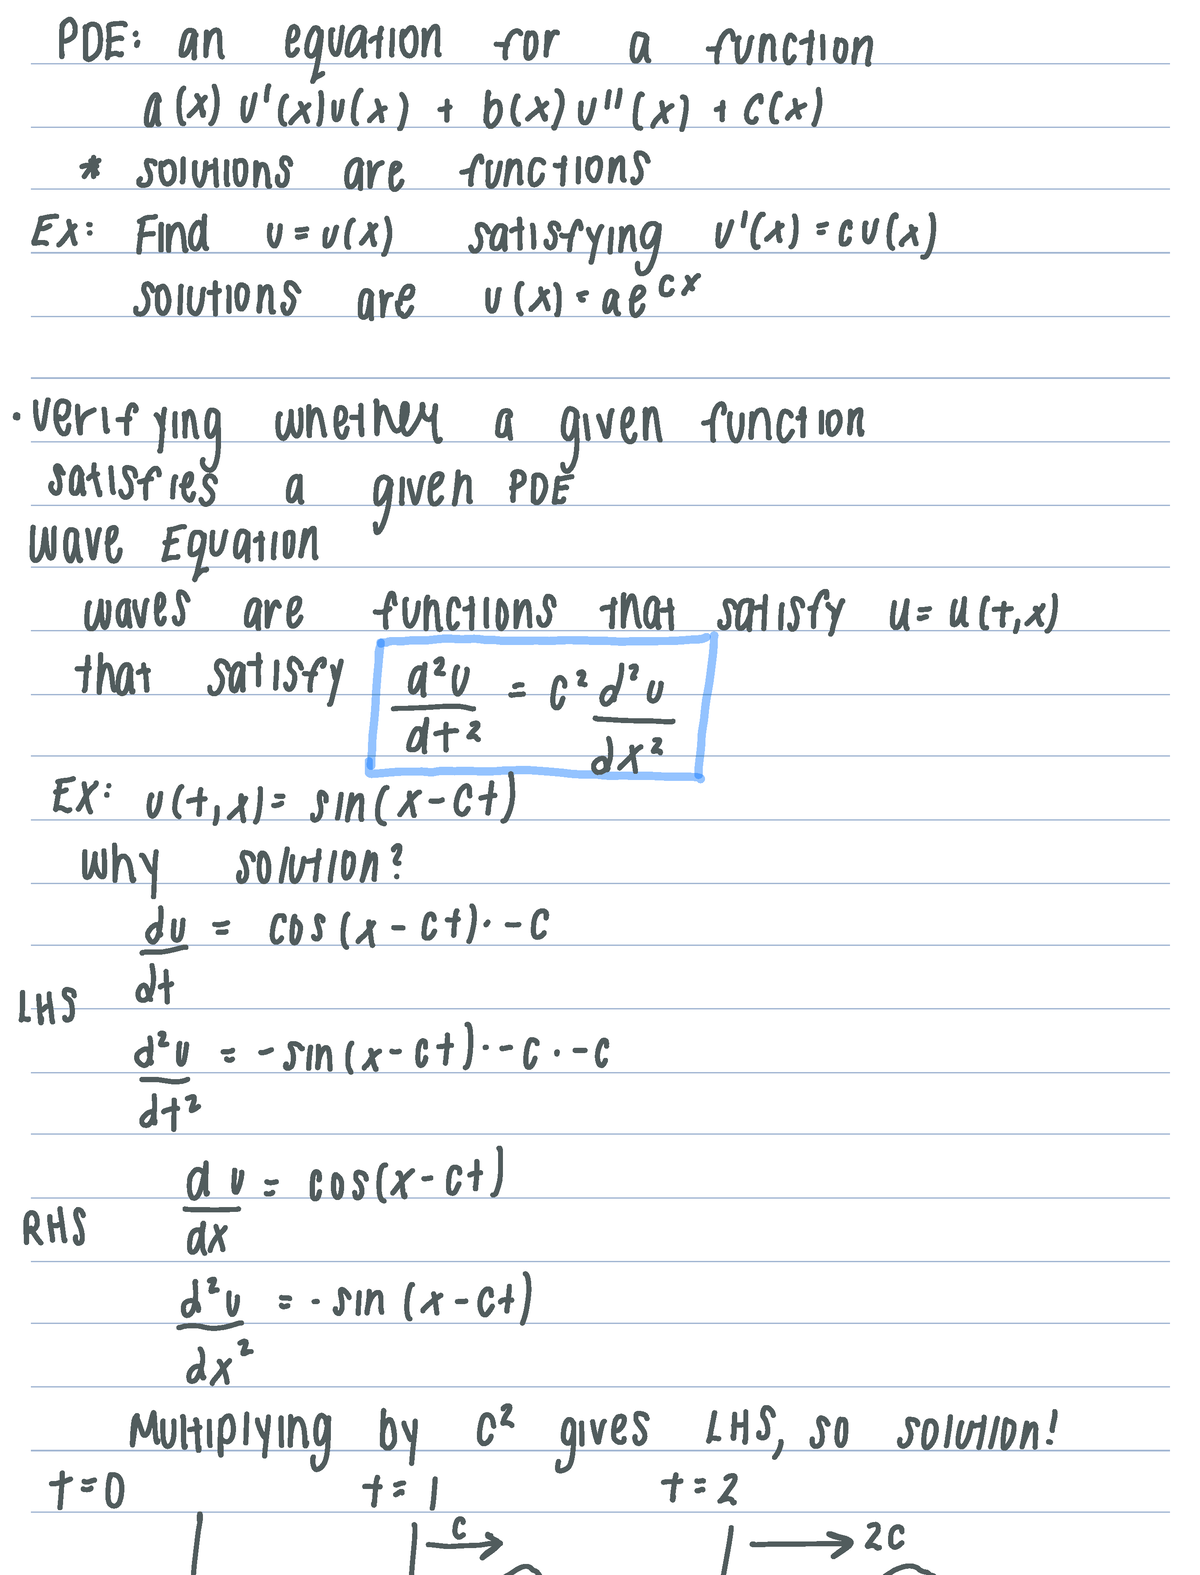 PDE: an equation for a function
a(x) u'(x)u(x) + b(x) u''(x) + c(x)
* solutions are functions
Ex: Find u = u(x) satisfying u'(x) = cu(x)
solutions are u(x) = ae^cx
• verifying whether a given function
satisfies a given PDE
Wave Equation
waves are functions that satisfy u = u(t,x)
that satisfy d²u/dt² = c² d²u/dx²
EX: u(t,x) = sin(x-ct)
Why solution?
du/dt = cos(x-ct)·-c
LHS
d²u/dt² = -sin(x-ct)·-c·-c
du/dx = cos(x-ct)
RHS
d²u/dx² = -sin(x-ct)
Multiplying by c² gives LHS, so solution!
t=0 t=1 t=2
c 2c